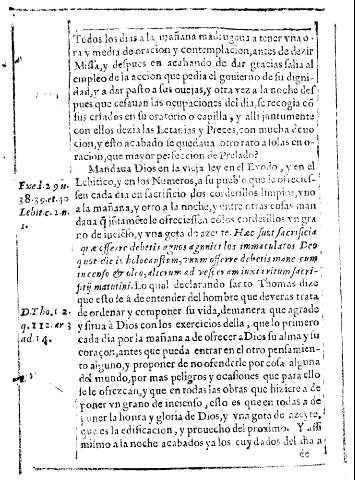 Todos los dias a la mañana madrugaua a tener vna o-
ra y media de oracion y contemplacion, antes de dezir
Missa, y despues en acabando de dar gracias salia al
empleo de la accion que pedia el gouierno de su digni-
dad, y a dar pasto a sus ouejas, y otra vez a la noche des
pues que cesauan las ocupaciones del dia, se recogia cõ
sus criados en su oratorio o capilla, y alli juntamente
con ellos dezia las Letanias y Preces, con mucha deuo
cion, y esto acabado se quedaua otro rato a solas en o-
racion, que mayor perfeccion de Prelado?
Mandaua Dios en la vieja ley en el Exodo, y en el
Lebitico, y en los Numeros, a su pueblo que le ofrecies-
sen cada dia en sacrificio dos corderillos limpios, vno
a la mañana, y otro a la noche, y entre otras cosas man
daua q̃ jũtamẽte le ofreciessen cõ los corderillos vn gra
no de inciẽso, y vna gota de azeyte. Hæc sunt sacrificia
quæ offerre debetis agnos agniculos immaculatos Deo
quotidie in holocaustum, vnum offerre debetis mane cum
incenso & oleo, alterum ad vesperam iuxta ritum sacri-
ficij matutini. Lo qual declarando santo Thomas dize
que esto se á de entender del hombre que deueras trata
de ordenar y componer su vida, demanera que agrade
y sirua à Dios con los exercicios della, que lo primero
cada dia por la mañana a de ofrecer a Dios su alma y su
coraçon, antes que pueda entrar en el otro pensamien-
to alguno, y proponer de no ofenderle por cosa alguna
del mundo, por mas peligros y ocasiones que para ello
se le ofrezcan, y que en todas las obras que hiziere a de
poner vn grano de incienso, esto es que en todas a de
poner la honra y gloria de Dios, y vna gota de azeyte,
que es la edificacion, y prouecho del proximo. Y assi
mismo a la noche acabados ya los cuydados del dia a
de
Exod. 29 n.
38. 39. et. 40
Lebit. c. 2. n.
1.
D. Tho. 1. 2.
q. 112. ar 3
ad. 14.